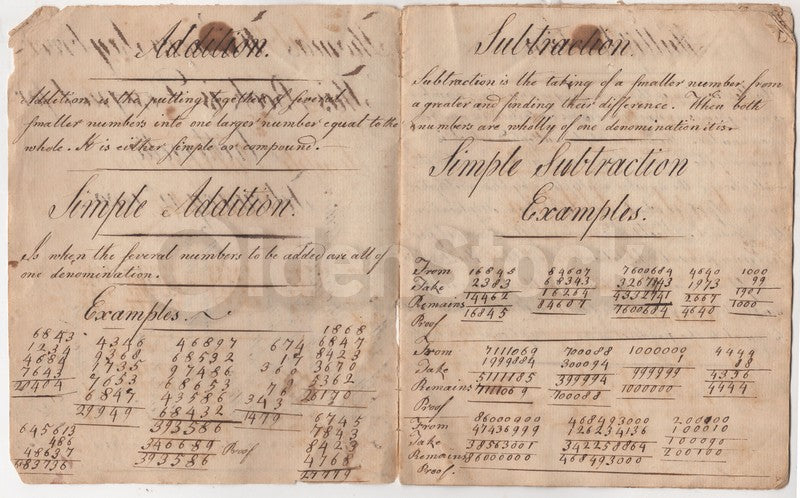 Addition.
Addition is the putting together of several
smaller numbers into one larger number equal to the
whole. It is either simple or compound.
Simple Addition.
Is when the several numbers to be added are all of
one denomination.
Examples.
6843 1868
1234 4346 46897 674 6847
4684 9368 68532 17 8423
7643 7735 97486 360 3670
20404 7653 68653 5362
6847 43586 343 26170
29949 68432 1479 6745
645613 393586 7843
486 346689 Proof 8423
48637 393586 4768
683736 27779
Subtraction.
Subtraction is the taking of a smaller number from
a greater and finding their difference. When both
numbers are wholly of one denomination it is.
Simple Subtraction
Examples.
From 16845 84607 7600684 4640 1000
Take 2383 68343 3267943 1973 99
Remains 14462 16264 4332741 2667 1901
Proof 16845 84607 7600684 4640 1000
From 7111069 700088 1000000 4444
Take 1999884 300094 1 88
Remains 5111185 399994 999999 4356
Proof 7111069 700088 1000000 4444
From 86000000 468493000 200000
Take 47436999 126234136 100010
Remains 38563001 342258864 100090
Proof. 86000000 468493000 200100
OldenStock